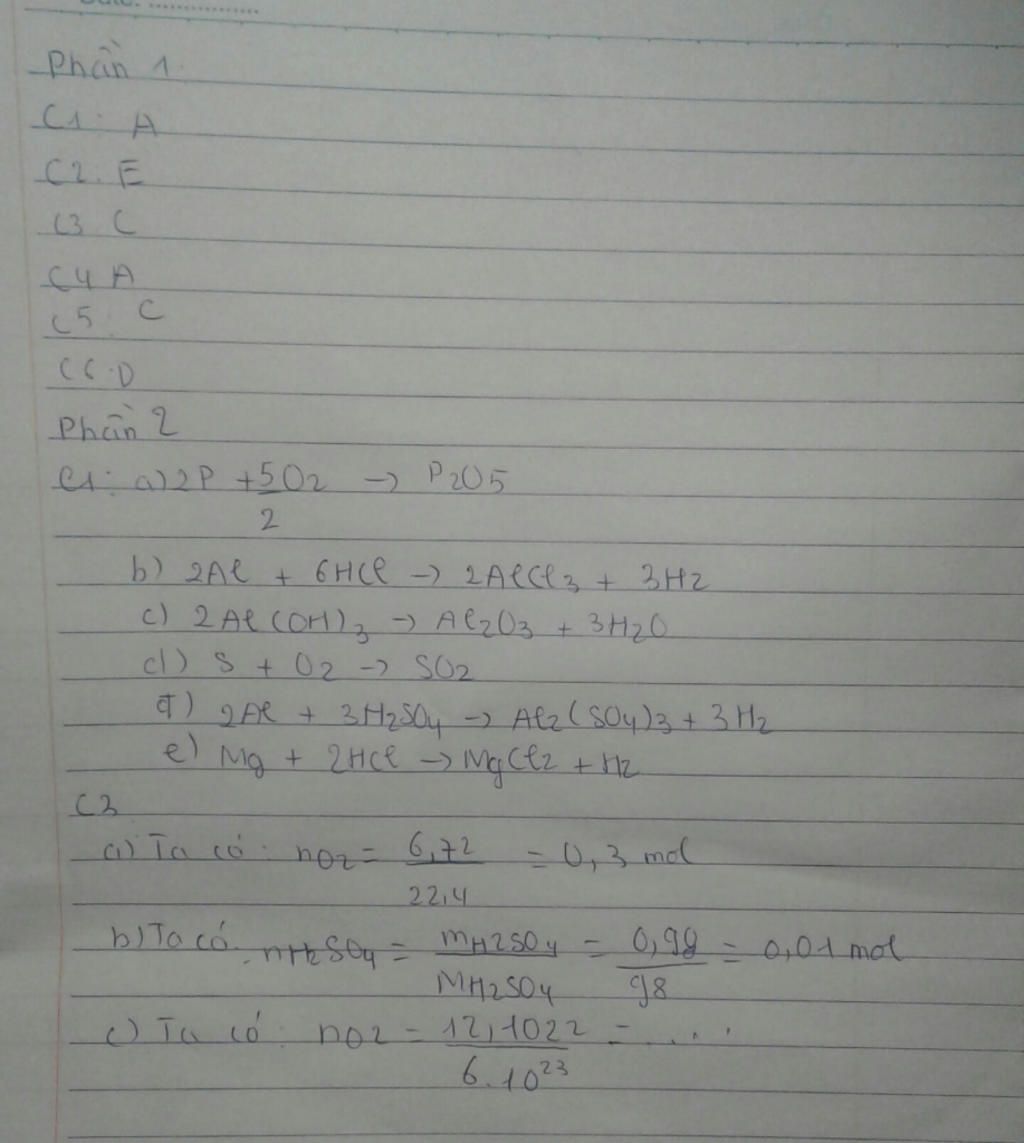 Phần 1.
C1: A
C2. E
C3 C
C4 A
C5. C
C6.D
Phần 2
C1: a) 2P + 5/2 O2 → P2O5
b) 2Al + 6HCl → 2AlCl3 + 3H2
c) 2Al(OH)3 → Al2O3 + 3H2O
d) S + O2 → SO2
đ) 2Al + 3H2SO4 → Al2(SO4)3 + 3H2
e) Mg + 2HCl → MgCl2 + H2
C3
a) Ta có: nO2 = 6,72/22,4 = 0,3 mol
b) Ta có. nH2SO4 = mH2SO4/MH2SO4 = 0,98/98 = 0,01 mol
c) Ta có: nO2 = 12,1022/6.10^23 = ....